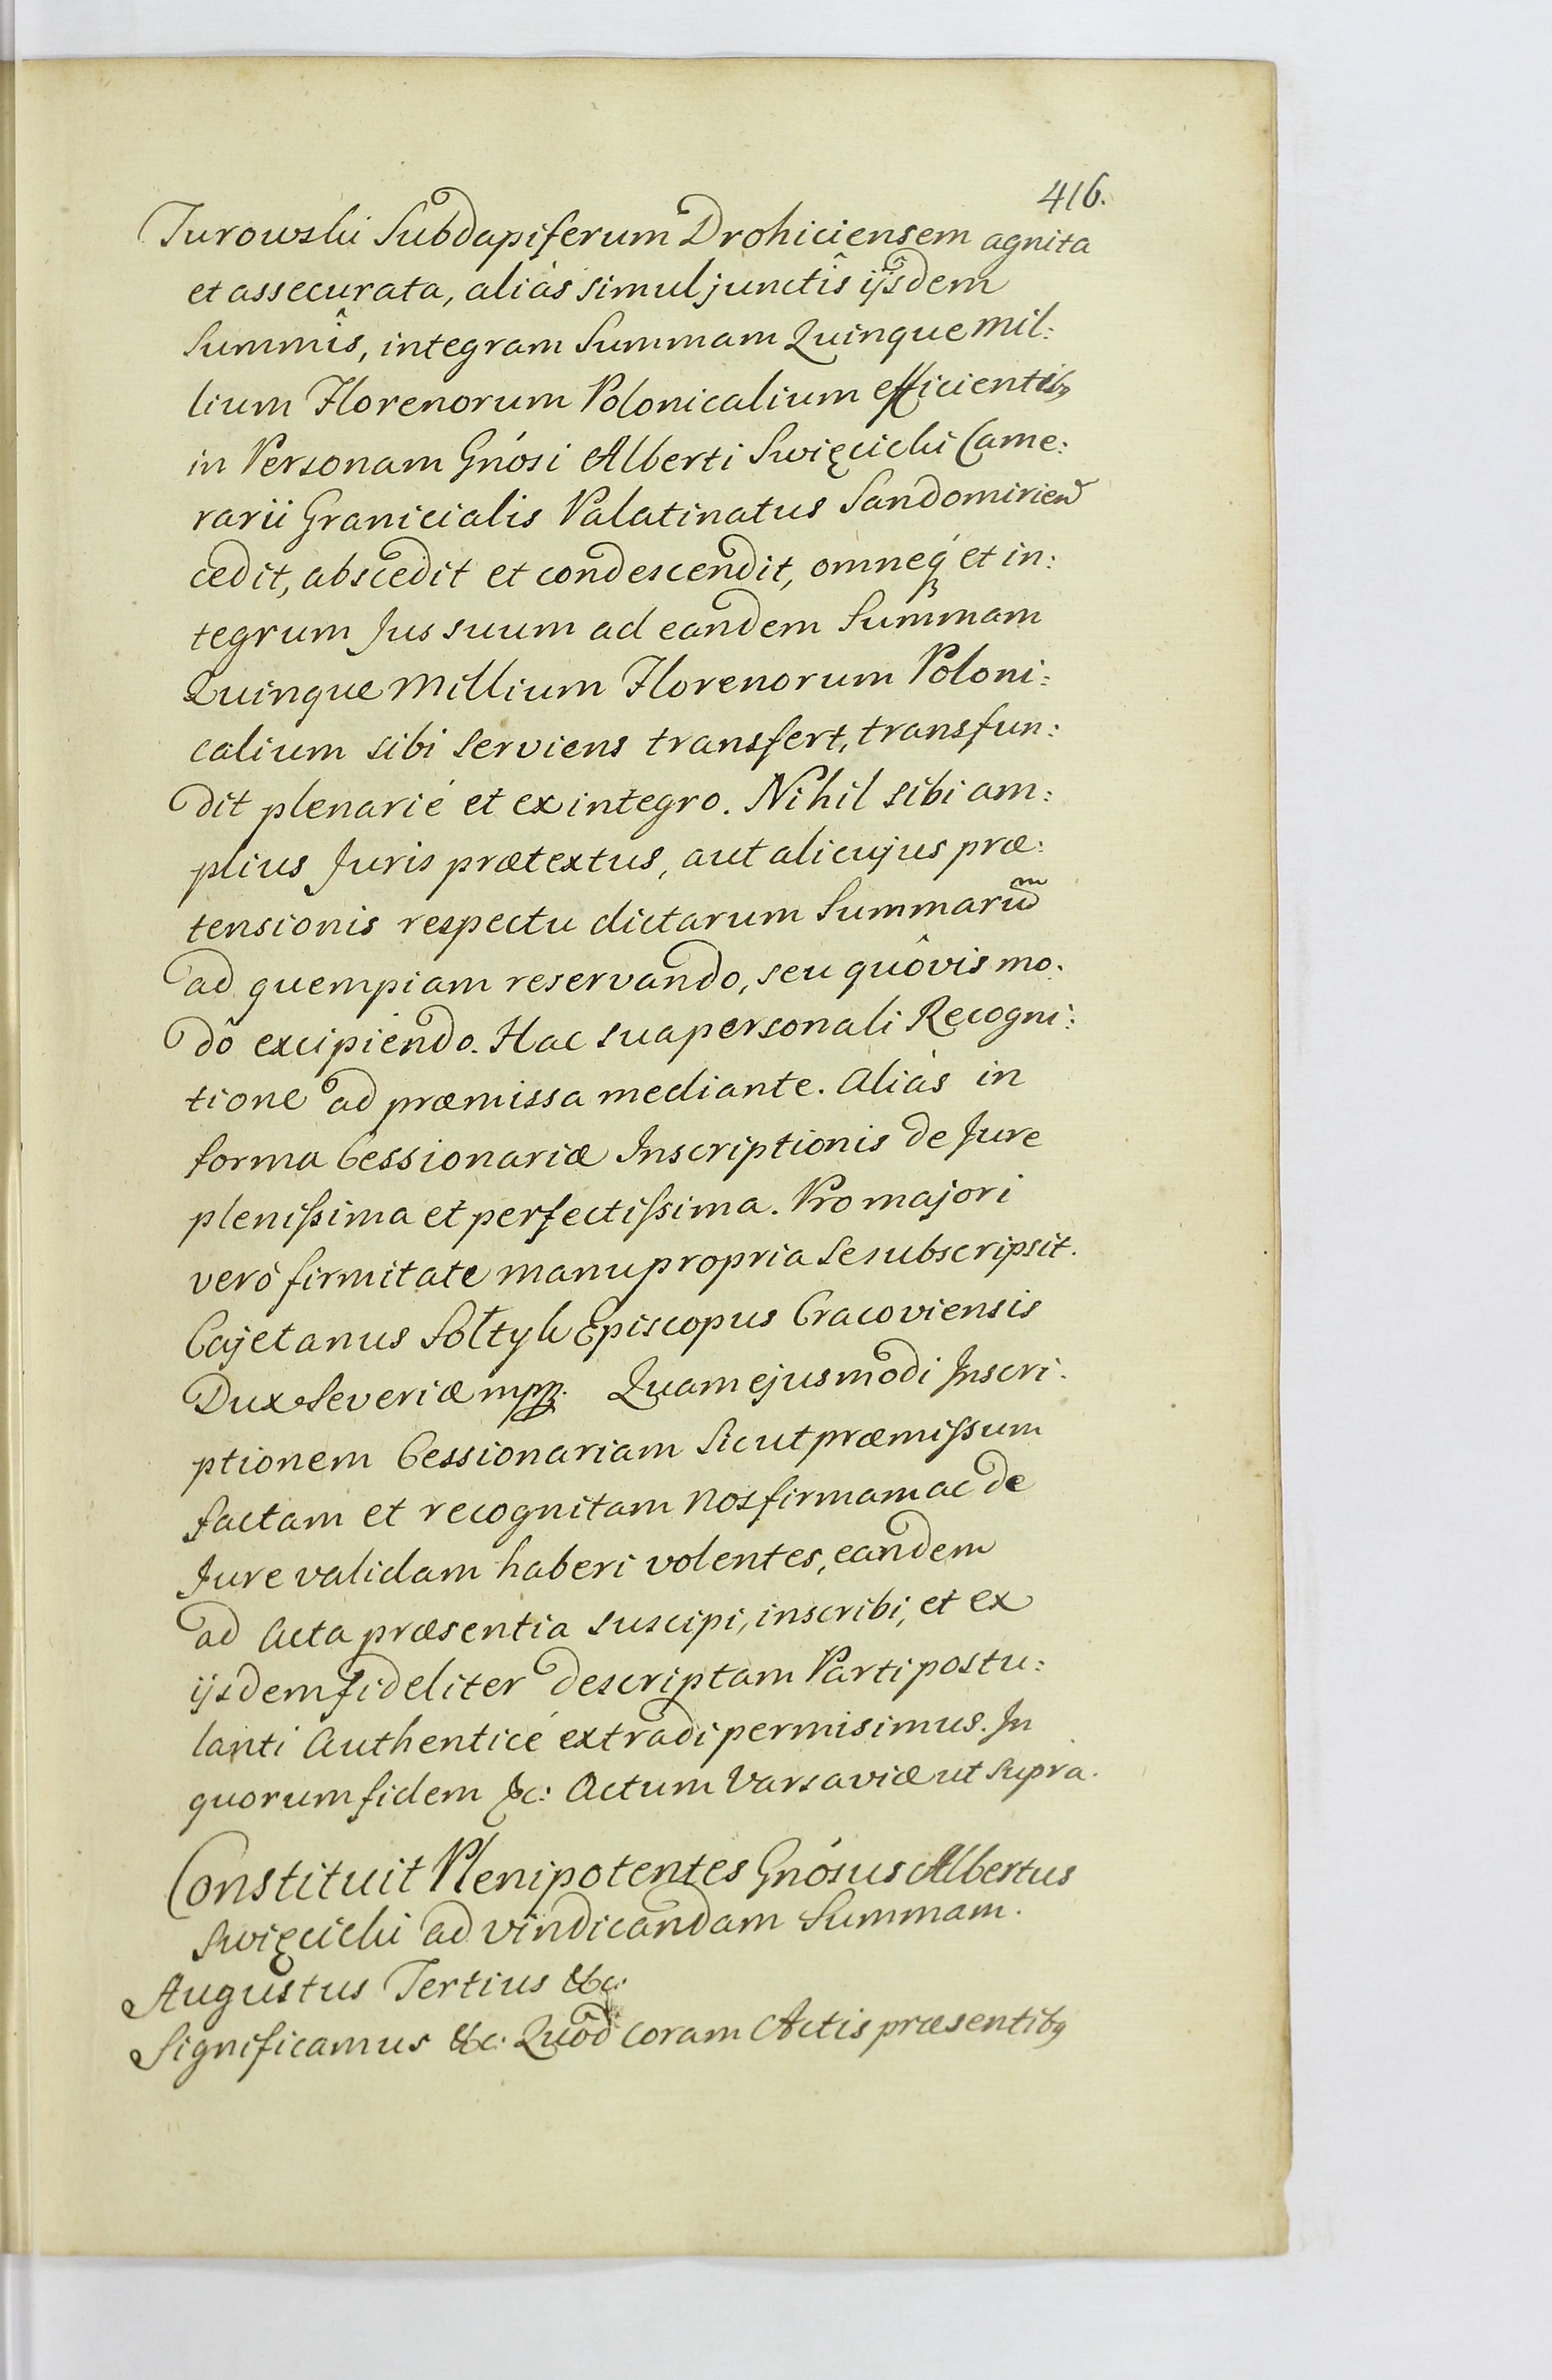 416.
Turowski Subdapiferum Drohiciensem agnita
et assecurata, aliàs simul junctîs iisdem
Summîs, integram Summam Quinque mil:
lium Florenorum Polonicalium efficientibq
in Personam Gnósi Alberti Swięcicki Came:
rarii Granicialis Palatinatus Sandomirien
cedit, abscedit et condescendit, omneq́ et in:
tegrum Jus suum ad eandem Summam
Quinque Millium Florenorum Poloni:
calium sibi serviens transfert, transfun:
dit plenarié et ex integro. Nihil sibi am:
plius Juris prætextus, aut alicujus præ:
tensionis respectu dictarum Summarum
ad quempiam reservando, seu quôvis mo:
dô excipiendo. Hac sua personali Recogni:
tione ad præmissa mediante. Aliàs in
forma Cessionariæ Inscriptionis de Jure
plenissima et perfectissima. Pro majori
verò firmitate manu propria se subscripsit.
Cajetanus Sołtyk Episcopus Cracoviensis
Dux Severiæ mpp. Quam ejusmodi Inscri:
ptionem Cessionariam Sicut præmissum
factam et recognitam Nos firmam ac de
Jure validam haberi volentes, eandem
ad Acta præsentia suscipi, inscribi, et ex
iisdem fideliter descriptam Parti postu:
lanti Authenticé extradi permisimus. In
quorum fidem &c: Actum Varsaviæ ut supra.
Constituit Plenipotentes Gnósus Albertus
Swięcicki ad vindicandam Summam.
Augustus Tertius &c:
Significamus &c: Quod coram Actis præsentibq